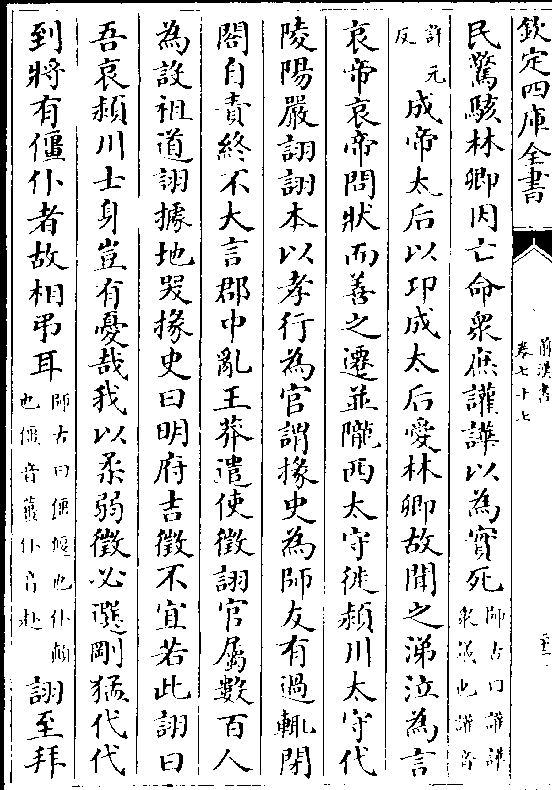 欽定四庫全書
前漢書
卷七十七
民驚駭林卿因亡命衆庶讙譁以為實死師古曰讙譁衆議也讙音
許元反成帝太后以卭成太后愛林卿故聞之涕泣為言
哀帝哀帝問狀而善之遷並隴西太守徙潁川太守代
陵陽嚴詡詡本以孝行為官謂掾史為師友有過輒閉
閤自責終不大言郡中亂王莽遣使徵詡官屬數百人
為設祖道詡據地哭掾史曰明府吉徵不宜若此詡曰
吾哀潁川士身豈有憂哉我以柔弱徵必選剛猛代代
到將有僵仆者故相弔耳師古曰僵偃也仆顛也僵音薑仆音赴詡至拜